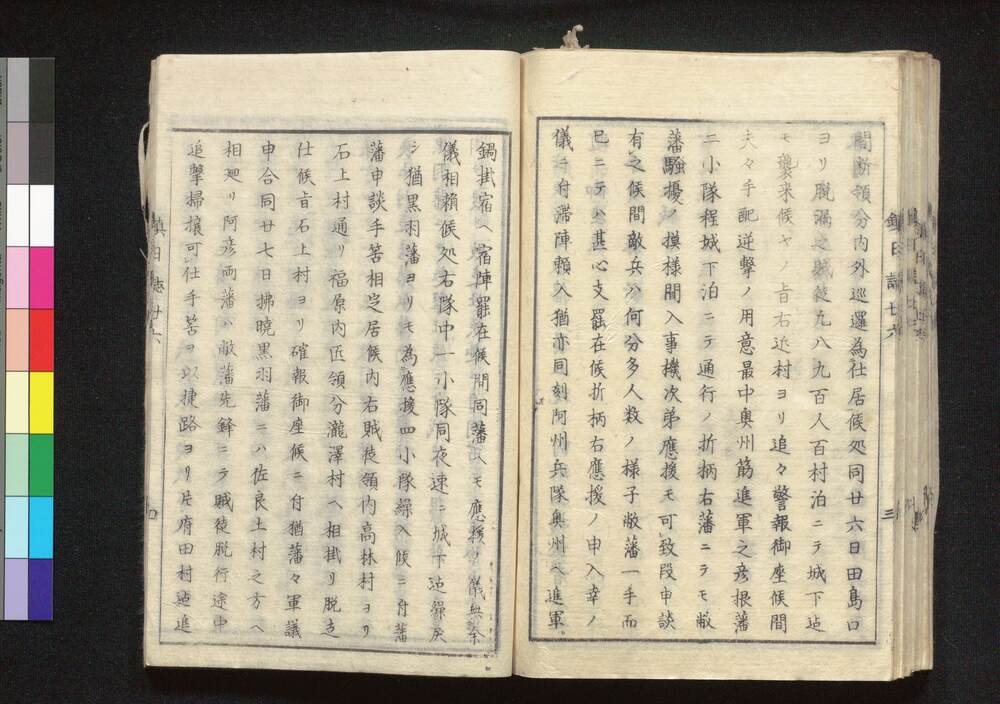 間断領分内外巡邏為仕居候処同廿六日田島口
ヨリ脱漏之賊徒九八九百人百村泊ニテ城下迠
モ襲来候ヤノ旨右近村ヨリ追々警報御座候間
夫々手配逆撃ノ用意最中奥州筋進軍之彦根藩
二小隊程城下泊ニテ通行ノ折柄右藩ニテモ敝
藩騒擾ノ摸様聞入事機次第應援モ可致段申談
有之候間敵兵ハ何分多人数ノ様子敝藩一手而
已ニテハ甚心支罷在候折柄右應援ノ申入幸ノ
儀ニ付滞陣頼入猶亦同刻阿州兵隊奥州ヘ進軍
鍋掛宿ヘ宿陣罷在候間同藩ヘモ應援ノ儀無
儀相頼候処右隊中一小隊同夜速ニ城下迠繰戻
シ猶黒羽藩ヨリモ為應援四小隊繰入候ニ付藩
藩申談手筈相定居候内右賊徒領内高林村ヨリ
石上村通リ福原内匠領分瀧澤村ヘ相掛リ脱走
仕候旨石上村ヨリ確報御座候ニ付猶藩々軍議
申合同廿七日拂暁黒羽藩ニハ佐良土村之方ヘ
相廻リ阿彦両藩ハ敝藩先鋒ニテ賊徒脱行途中
追撃掃攘可仕手筈ヲ以捷路ヨリ片府田村迠追
鎮日誌廿六